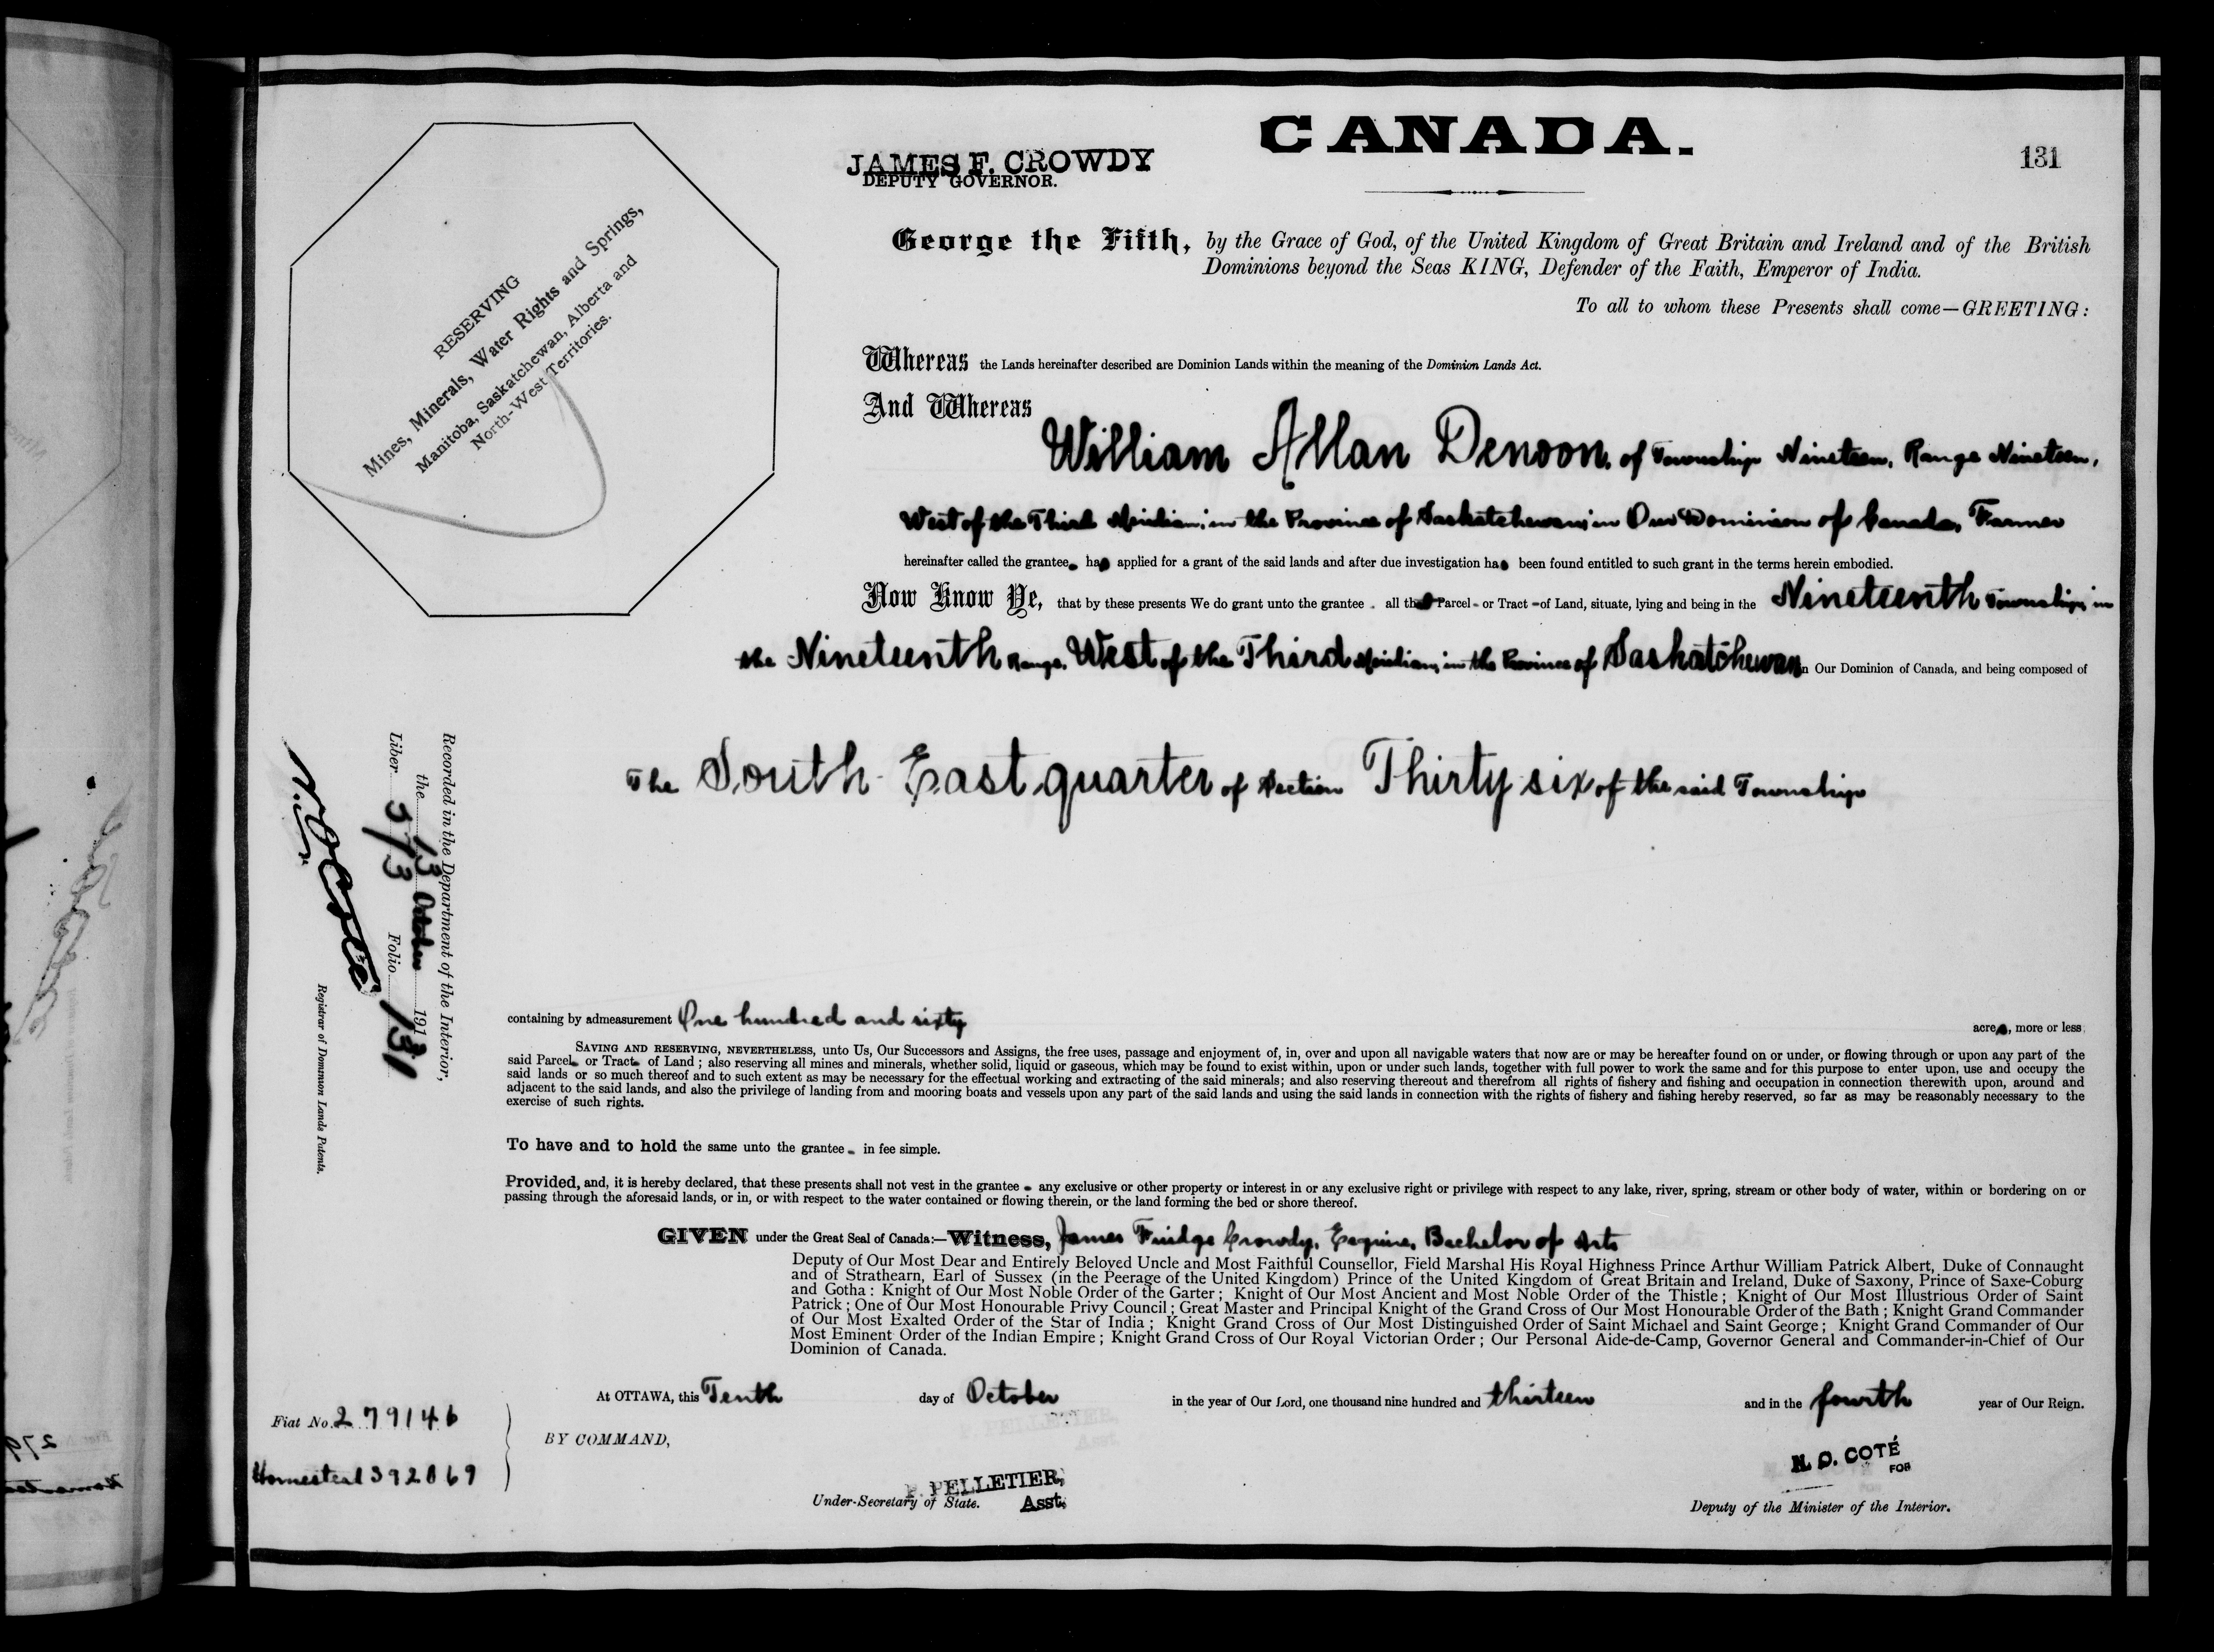 CANADA.
131
JAMES F. CROWDY
DEPUTY GOVERNOR.
RESERVING
Mines, Minerals, Water Rights and Springs,
Manitoba, Saskatchewan, Alberta and
North-West Territories.
George the Fifth, by the Grace of God, of the United Kingdom of Great Britain and Ireland and of the British
Dominions beyond the Seas KING, Defender of the Faith, Emperor of India.
To all to whom these Presents shall come—GREETING:
Whereas the Lands hereinafter described are Dominion Lands within the meaning of the Dominion Lands Act.
And Whereas
William Allan Denoon, of Township Nineteen, Range Nineteen,
West of the Third Meridian, in the Province of Saskatchewan, in Our Dominion of Canada, Farmer
hereinafter called the grantee, has applied for a grant of the said lands and after due investigation has been found entitled to such grant in the terms herein embodied.
Now Know Ye, that by these presents We do grant unto the grantee all that Parcel or Tract of Land, situate, lying and being in the Nineteenth Township, in
the Nineteenth Range, West of the Third Meridian, in the Province of Saskatchewan in Our Dominion of Canada, and being composed of
The South East quarter of Section Thirty six of the said Township
Recorded in the Department of the Interior,
the 13 October 1913
Liber 373 Folio 131
N.O. Coté
Registrar of Dominion Lands Patents.
containing by admeasurement One hundred and sixty acres, more or less
SAVING AND RESERVING, NEVERTHELESS, unto Us, Our Successors and Assigns, the free uses, passage and enjoyment of, in, over and upon all navigable waters that now are or may be hereafter found on or under, or flowing through or upon any part of the
said Parcel or Tract of Land; also reserving all mines and minerals, whether solid, liquid or gaseous, which may be found to exist within, upon or under such lands, together with full power to work the same and for this purpose to enter upon, use and occupy the
said lands or so much thereof and to such extent as may be necessary for the effectual working and extracting of the said minerals; and also reserving thereout and therefrom all rights of fishery and fishing and occupation in connection therewith upon, around and
adjacent to the said lands, and also the privilege of landing from and mooring boats and vessels upon any part of the said lands and using the said lands in connection with the rights of fishery and fishing hereby reserved, so far as may be reasonably necessary to the
exercise of such rights.
To have and to hold the same unto the grantee in fee simple.
Provided, and, it is hereby declared, that these presents shall not vest in the grantee any exclusive or other property or interest in or any exclusive right or privilege with respect to any lake, river, spring, stream or other body of water, within or bordering on or
passing through the aforesaid lands, or in, or with respect to the water contained or flowing therein, or the land forming the bed or shore thereof.
GIVEN under the Great Seal of Canada:—Witness, James Fuidge Crowdy, Esquire, Bachelor of Arts
Deputy of Our Most Dear and Entirely Beloved Uncle and Most Faithful Counsellor, Field Marshal His Royal Highness Prince Arthur William Patrick Albert, Duke of Connaught
and of Strathearn, Earl of Sussex (in the Peerage of the United Kingdom) Prince of the United Kingdom of Great Britain and Ireland, Duke of Saxony, Prince of Saxe-Coburg
and Gotha: Knight of Our Most Noble Order of the Garter; Knight of Our Most Ancient and Most Noble Order of the Thistle; Knight of Our Most Illustrious Order of Saint
Patrick; One of Our Most Honourable Privy Council; Great Master and Principal Knight of the Grand Cross of Our Most Honourable Order of the Bath; Knight Grand Commander
of Our Most Exalted Order of the Star of India; Knight Grand Cross of Our Most Distinguished Order of Saint Michael and Saint George; Knight Grand Commander of Our
Most Eminent Order of the Indian Empire; Knight Grand Cross of Our Royal Victorian Order; Our Personal Aide-de-Camp, Governor General and Commander-in-Chief of Our
Dominion of Canada.
At OTTAWA, this Tenth day of October in the year of Our Lord, one thousand nine hundred and thirteen and in the fourth year of Our Reign.
Fiat No. 279146
BY COMMAND,
Homestead 392869
P. PELLETIER,
Under-Secretary of State. Asst.
N. O. COTÉ
FOR
Deputy of the Minister of the Interior.